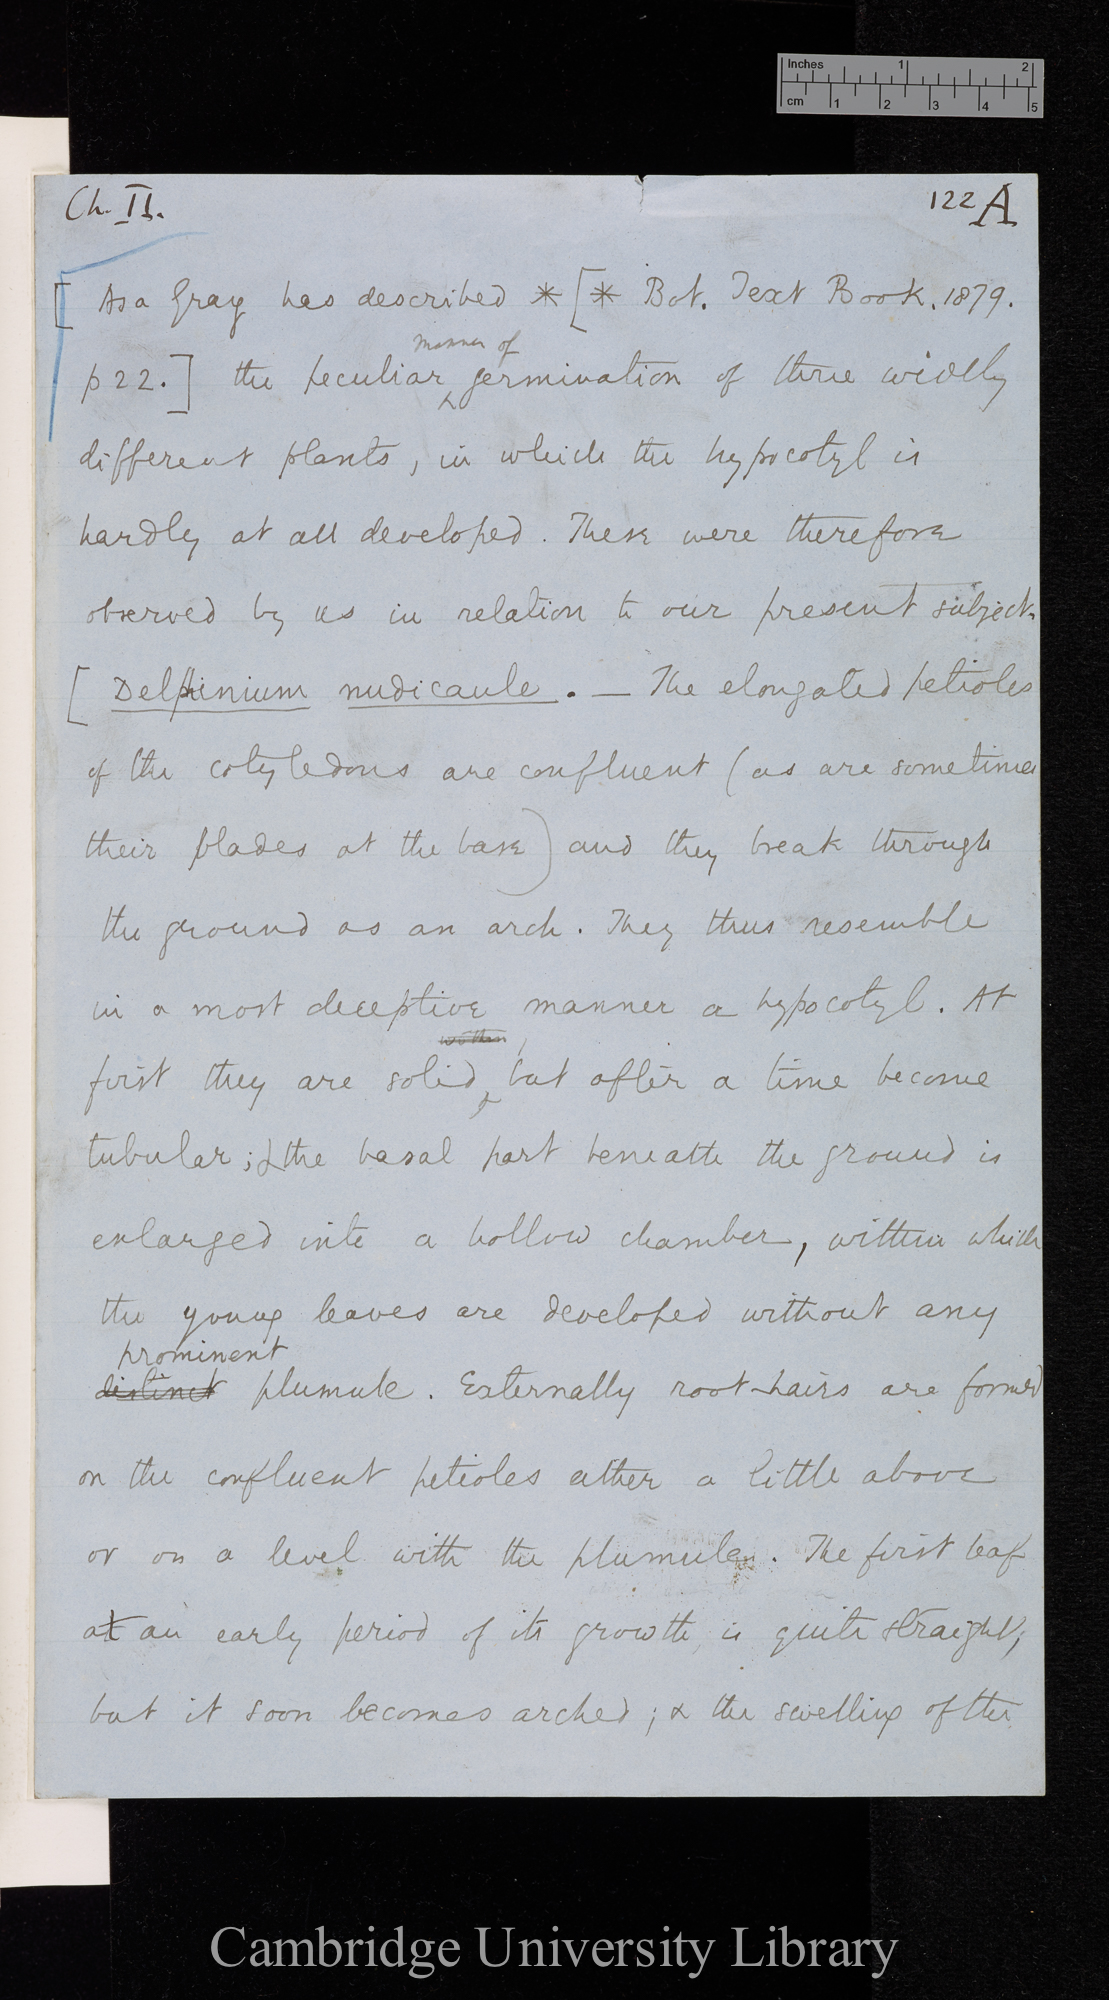 Inches 1 2
cm 1 2 3 4 5
Ch. II. 122 A
[ Asa Gray has described * [* Bot. Text Book. 1879.
manner of
p 22.] the peculiar germination of three widely
different plants, in which the hypocotyl is
hardly at all developed. These were therefore
observed by us in relation to our present subject.
[ Delphinium nudicaule. — The elongated petioles
of the cotyledons are confluent (as are sometimes
their blades at the base) and they break through
the ground as an arch. They thus resemble
in a most deceptive manner a hypocotyl. At
within
first they are solid, but after a time become
tubular; & the basal part beneath the ground is
enlarged into a hollow chamber, within which
the young leaves are developed without any
prominent
distinct plumule. Externally root-hairs are formed
on the confluent petioles either a little above
or on a level with the plumule. The first leaf
at an early period of its growth is quite straight,
but it soon becomes arched; & the swelling of the
Cambridge University Library